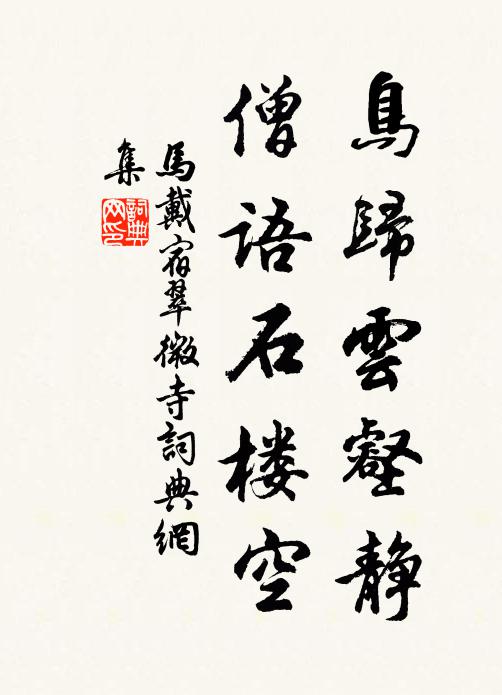 鳥歸雲壑静
僧語石楼空
馬戴宿翠微寺詞典網
集
詞典
网印